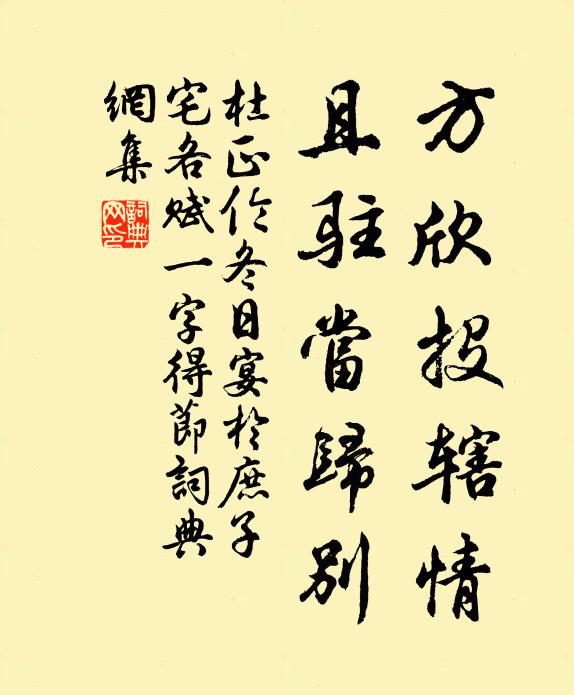 方欣投辖情
且駐當歸別
杜正伦冬日宴於庶子
宅各賦一字得節詞典
網集
詞典網印